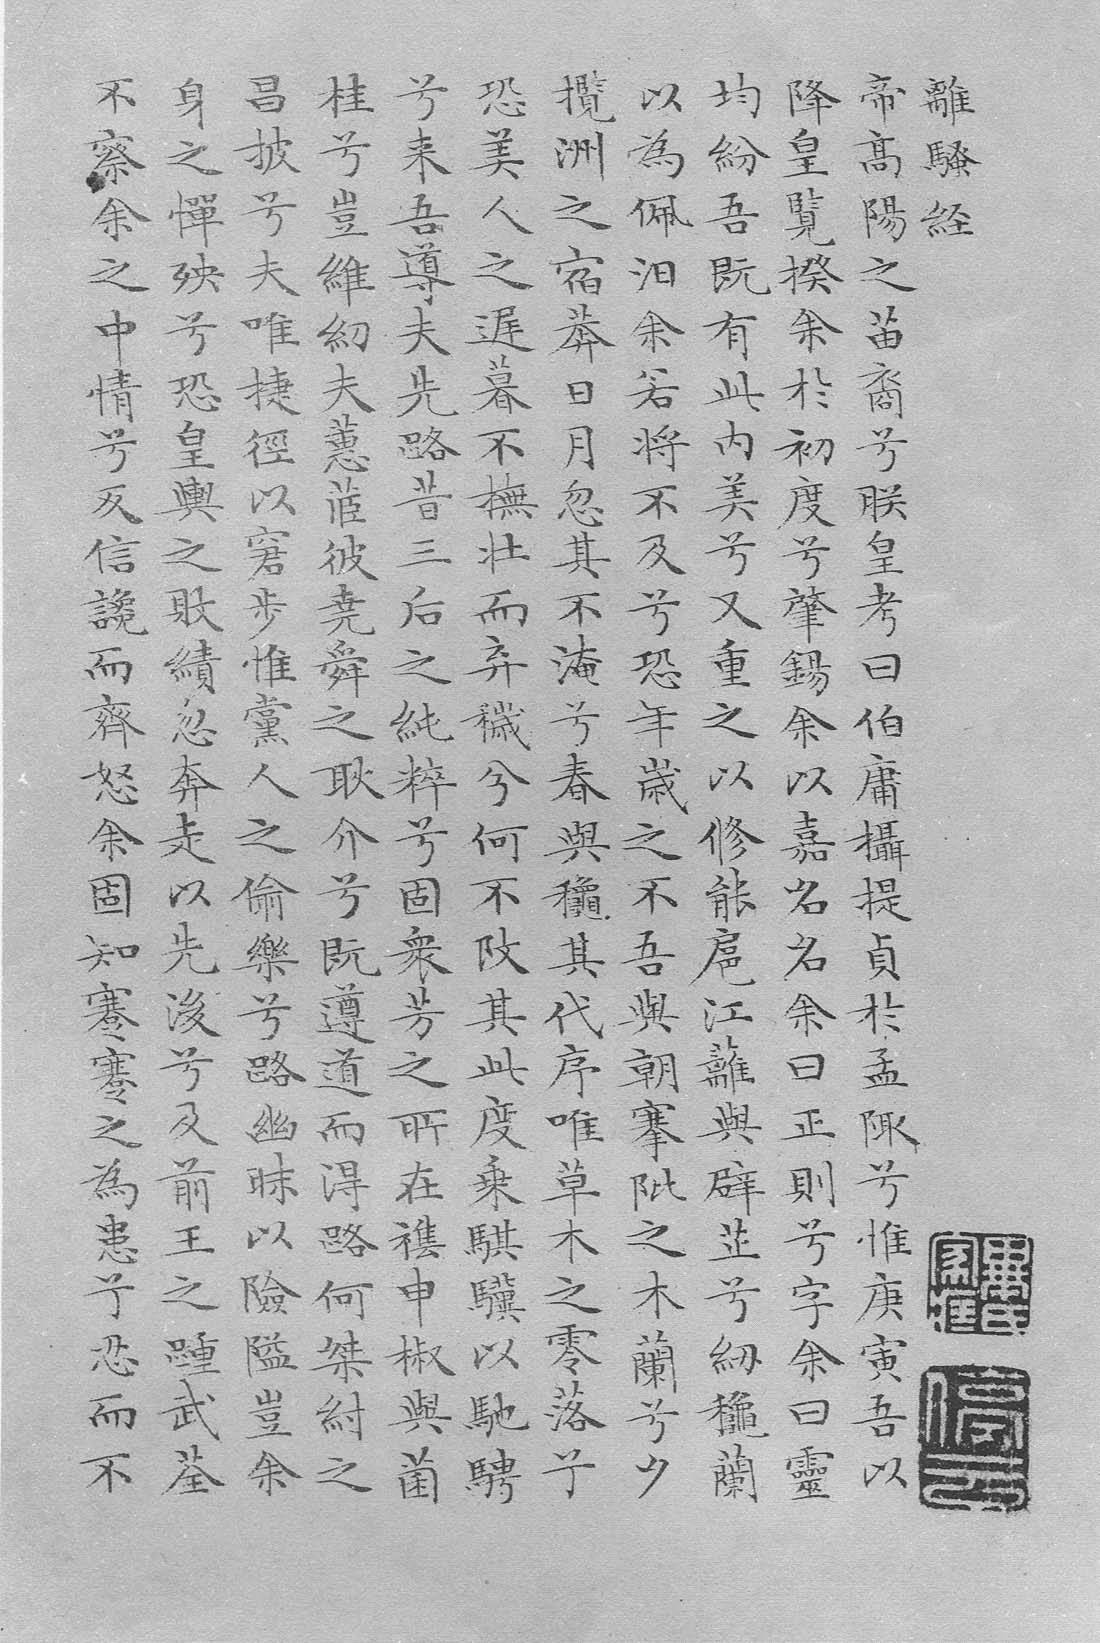 離騷経
帝髙陽之苗裔兮朕皇考曰伯庸攝提貞於孟陬兮惟庚寅吾以
降皇覽揆余於初度兮肇錫余以嘉名名余曰正則兮字余曰靈
均紛吾既有此内美兮又重之以修能扈江蘺與辟芷兮紉龝蘭
以為佩汨余若将不及兮恐年歳之不吾與朝搴阰之木蘭兮夕
攬洲之宿莽日月忽其不淹兮春與龝其代序唯草木之零落兮
恐美人之遅暮不撫壯而弃穢兮何不攺其此度乗騏驥以馳騁
兮来吾導夫先路昔三后之純粹兮固衆芳之所在襍申椒與菌
桂兮豈維紉夫蕙茝彼堯舜之耿介兮既遵道而得路何桀紂之
昌披兮夫唯捷徑以窘步惟黨人之偷樂兮路幽昧以險隘豈余
身之憚殃兮恐皇輿之敗績忽奔走以先後兮及前王之踵武荃
不察余之中情兮反信讒而齊怒余固知謇謇之為患兮忍而不